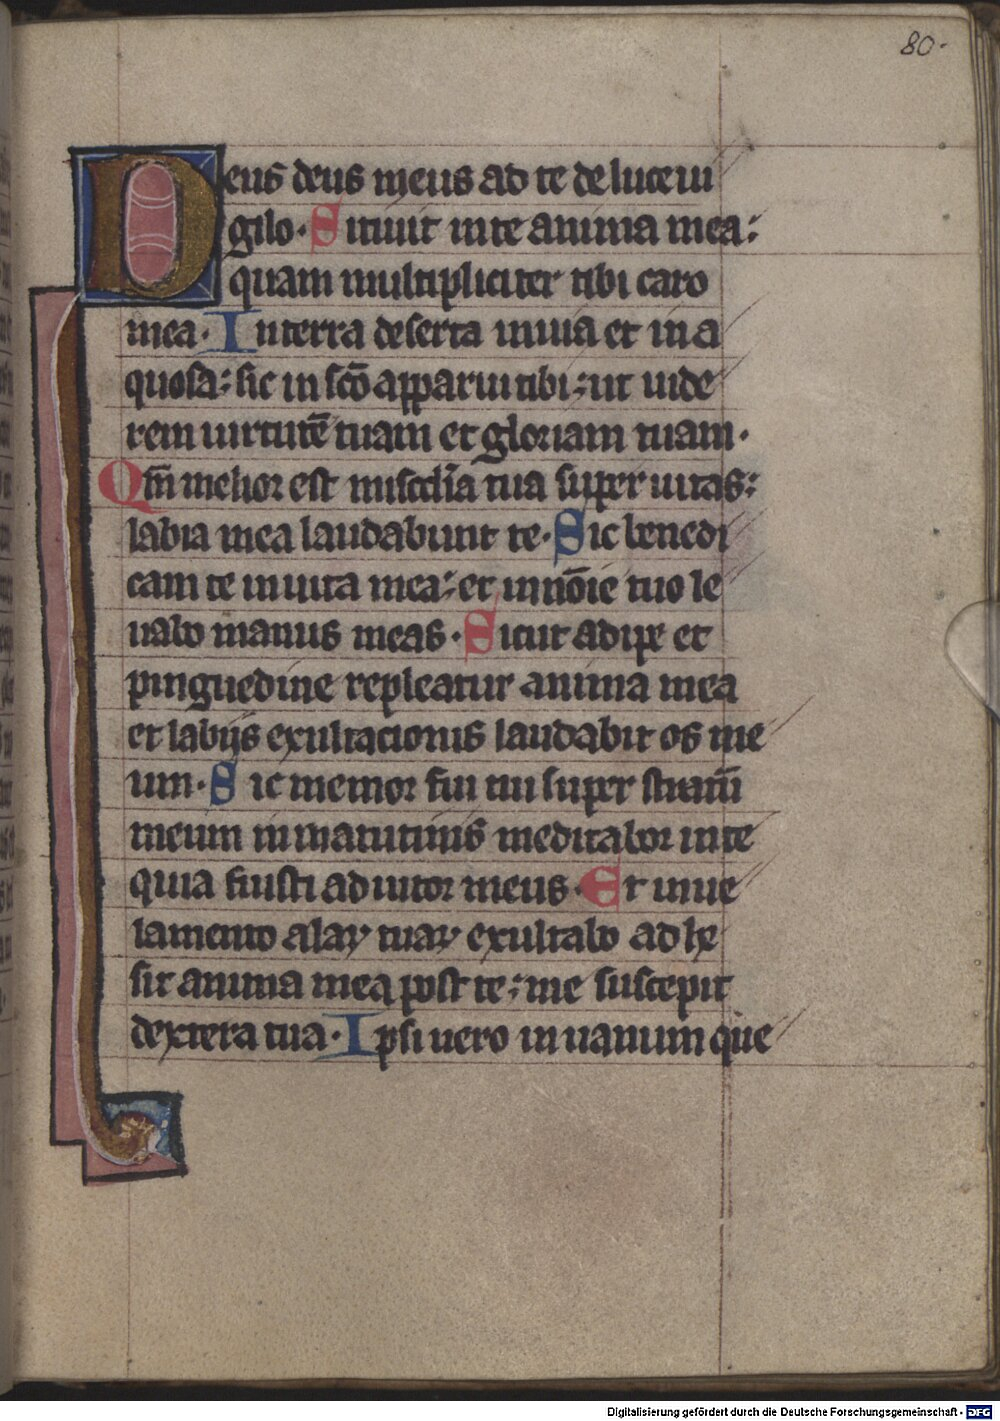 80.
Deus deus meus ad te de luce ui
gilo. Sitiuit in te anima mea:
quam multipliciter tibi caro
mea. In terra deserta inuia et in a
quosa: sic in sc̄o apparui tibi: ut uide
rem uirtutē tuam et gloriam tuam.
Qm̄ melior est mis̄cdīa tua super uitas:
labia mea laudabunt te. Sic benedi
cam te in uita mea: et in nōie tuo le
uabo manus meas. Sicut adipe et
pinguedine repleatur anima mea
et labijs exultacionis laudabit os me
um. Sic memor fui tui super stratū
meum in matutinis meditabor in te
quia fuisti adiutor meus. Et in ue
lamento alaꝝ tuaꝝ exultabo adhe
sit anima mea post te: me suscepit
dextera tua. Ipsi uero in uanum que
Digitalisierung gefördert durch die Deutsche Forschungsgemeinschaft - DFG